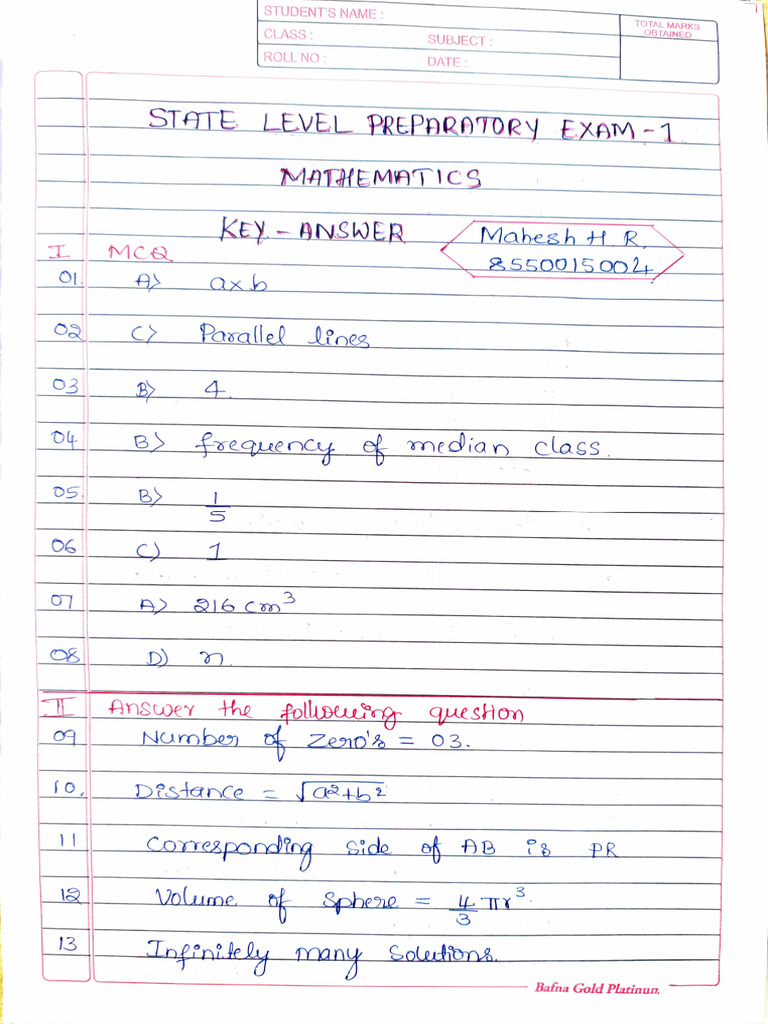 STUDENT'S NAME :
CLASS : SUBJECT :
ROLL NO : DATE :
TOTAL MARKS
OBTAINED
STATE LEVEL PREPARATORY EXAM-1
MATHEMATICS
KEY-ANSWER
Mahesh H R.
8550015004
I MCQ
01. A) a×b
02 C) Parallel lines
03 B) 4.
04 B) frequency of median class.
05. B) 1/5
06 C) 1
07 A) 216 cm³
08 D) n
II Answer the following question
09 Number of Zero's = 03.
10. Distance = √a²+b²
11 Corresponding side of AB is PR
12 Volume of Sphere = 4/3 πr³.
13 Infinitely many Solutions.
Bafna Gold Platinun.